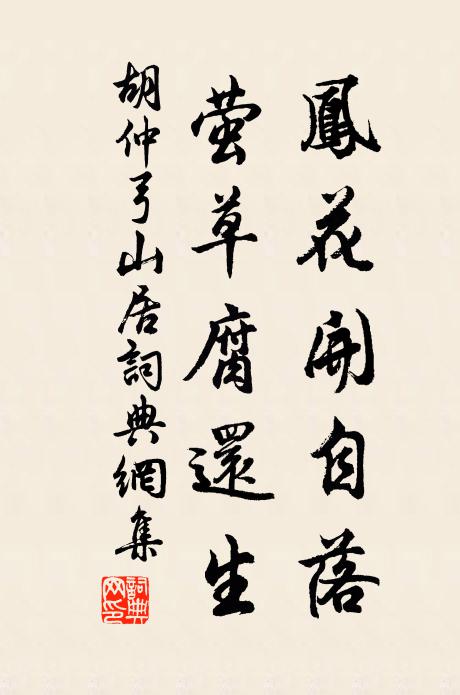 鳳花開自落
螢草腐還生
胡仲弓山居詞典網集
詞典網印